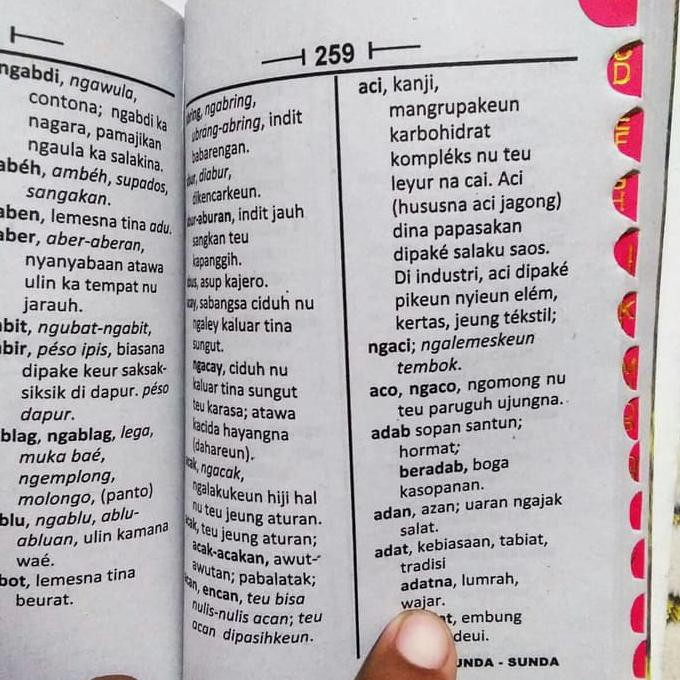 ngabdi, ngawula,
contona; ngabdi ka
nagara, pamajikan
ngaula ka salakina.
abéh, ambéh, supados,
sangakan.
aben, lemesna tina adu.
aber, aber-aberan,
nyanyabaan atawa
ulin ka tempat nu
jarauh.
abit, ngubat-ngabit,
abir, péso ipis, biasana
dipake keur saksak-
siksik di dapur. péso
dapur.
blag, ngablag, lega,
muka baé,
ngemplong,
molongo, (panto)
blu, ngablu, ablu-
abluan, ulin kamana
waé.
bot, lemesna tina
beurat.
259
ngabring,
ubrang-abring, indit
babarengan.
diabur,
dikencarkeun.
aburan, indit jauh
sangkan teu
kapanggih.
asup kajero.
sabangsa ciduh nu
ngaley kaluar tina
sungut.
ngacay, ciduh nu
kaluar tina sungut
teu karasa; atawa
kacida hayangna
(dahareun).
ngacak,
ngalakukeun hiji hal
nu teu jeung aturan.
teu jeung aturan;
acak-acakan, awut-
awutan; pabalatak;
encan, teu bisa
nulis-nulis acan; teu
acan dipasihkeun.
aci, kanji,
mangrupakeun
karbohidrat
kompléks nu teu
leyur na cai. Aci
(hususna aci jagong)
dina papasakan
dipaké salaku saos.
Di industri, aci dipaké
pikeun nyieun elém,
kertas, jeung tékstil;
ngaci; ngalemeskeun
tembok.
aco, ngaco, ngomong nu
teu paruguh ujungna.
adab sopan santun;
hormat;
beradab, boga
kasopanan.
adan, azan; uaran ngajak
salat.
adat, kebiasaan, tabiat,
tradisi
adatna, lumrah,
wajar.
embung
deui.
UNDA - SUNDA